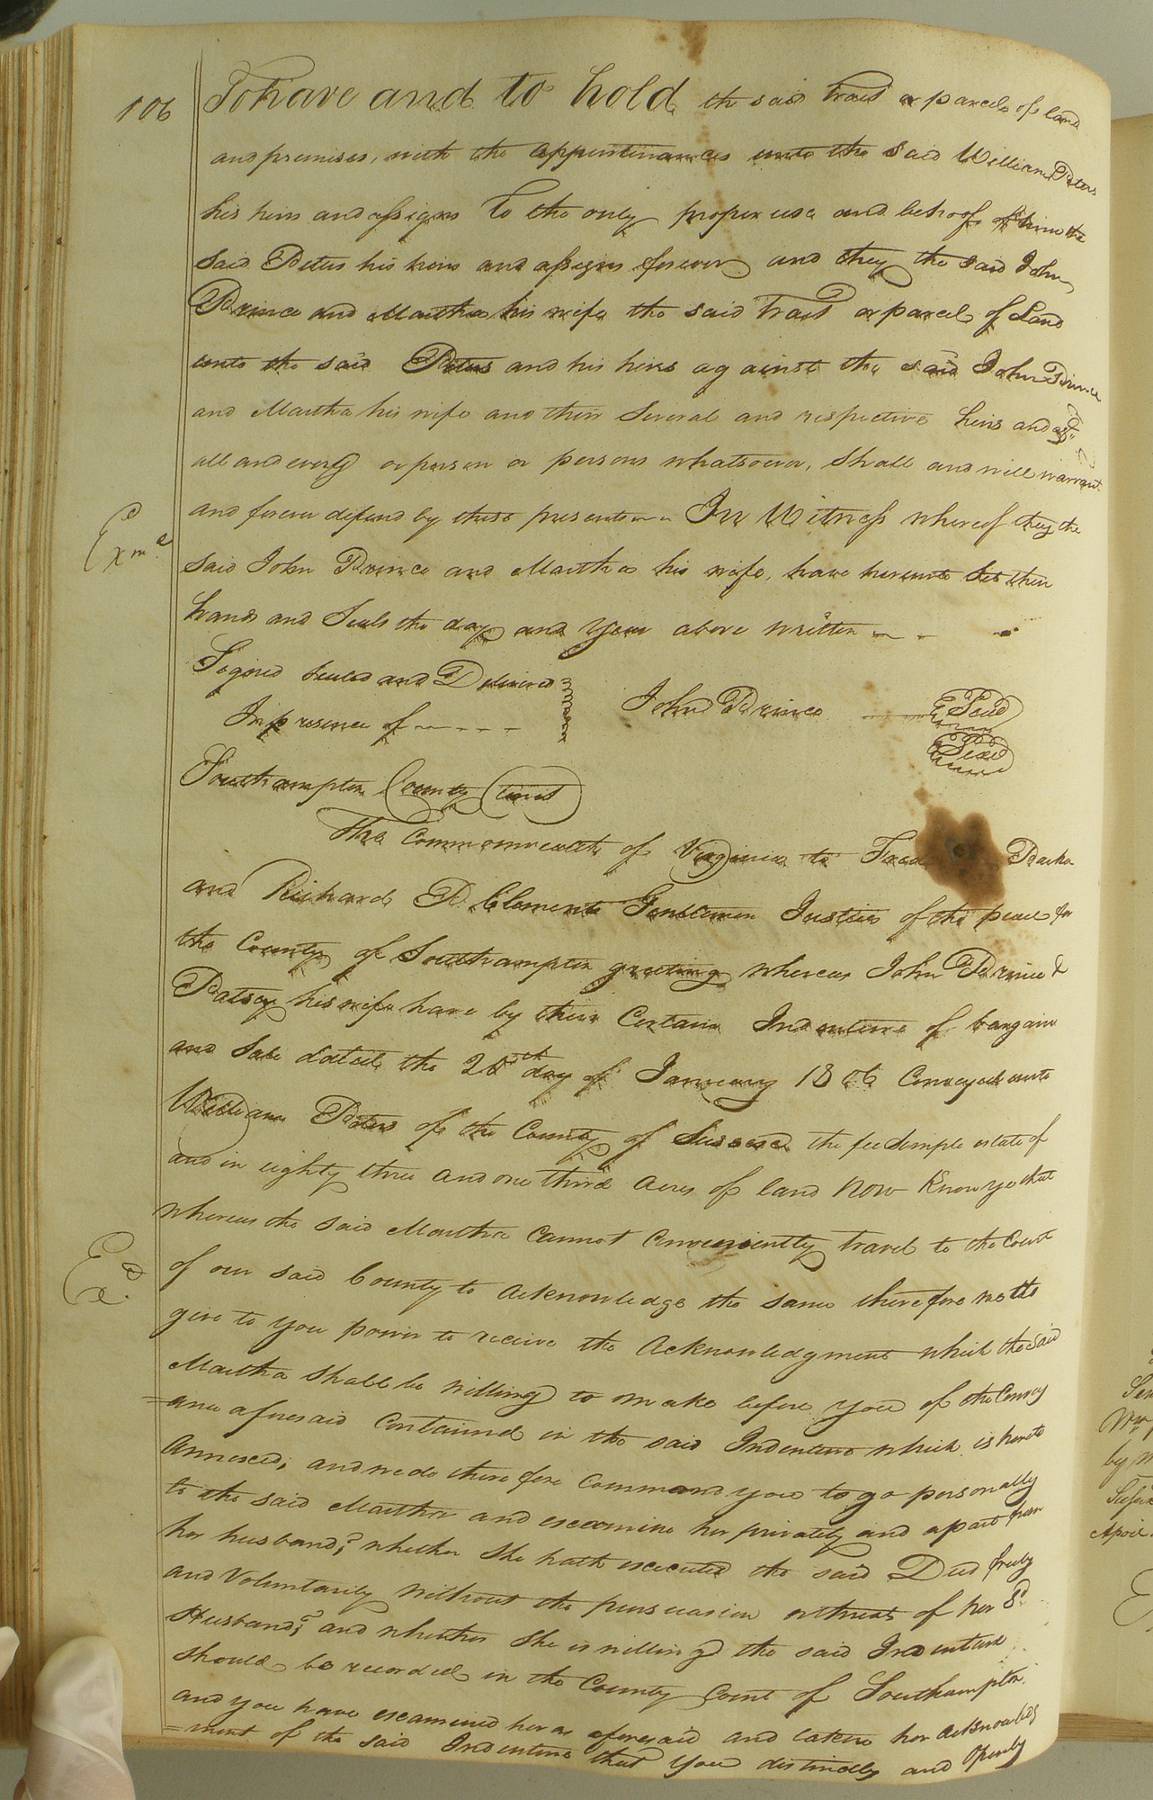 106
To have and to hold the said tract or parcel of land
and premises, with the appurtinances unto the said William Peters
his heirs and assigns to the only proper use and behoof of him the
said Peters his heirs and assigns forever and they the said John
Prince and Martha his wife the said tract or parcel of Land
unto the said Peters and his heirs against the said John Prince
and Martha his wife and their Several and respective heirs and
all and every or person or persons whatsoever, shall and will warrant
and forever defend by these presents In Witness whereof they the
Exm.d
said John Prince and Martha his wife, have hereunto set their
hands and Seals the day and year above written
Signed Sealed and Delivered
In presence of
John Prince Seal
Seal
Southampton County (towit)
The Commonwealth of Virginia to Parker
and Richard P. Clements Gentlemen Justices of the peace for
the County of Southampton greeting whereas John Prince &
Patsey his wife have by their Certain Indenture of bargain
and Sale dated the 28th day of January 1806 Conveyed unto
William Peters of the County of Sussex the fee Simple estate of
and in eighty three and one third Acres of land Now Know ye that
whereas the said Martha Cannot Conveniently travel to the Court
Ex.d
of our said County to Acknowledge the same therefore we do
give to you power to receive the Acknowledgment which the said
Martha Shall be willing to make before you of the Convey
=ance aforesaid Contained in the said Indenture which is hereto
Annexed, and we do therefore Command you to go personally
to the said Martha and excamine her privately and apart from
her husband, whether She hath executed the said Deed freely
and Voluntarily without the persuasion or threats of her Sd
Husband, and whether She is willing the said Indenture
should be recorded in the County Court of Southampton
and you have excamined her as aforesaid and taken her Acknowledg
=ment of the said Indenture that you distinctly and Openly
by